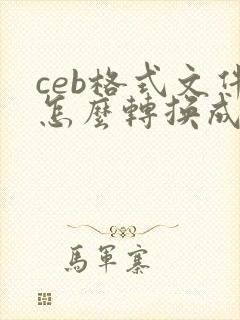 ceb格式文件
怎麼轉換成
馬軍寨